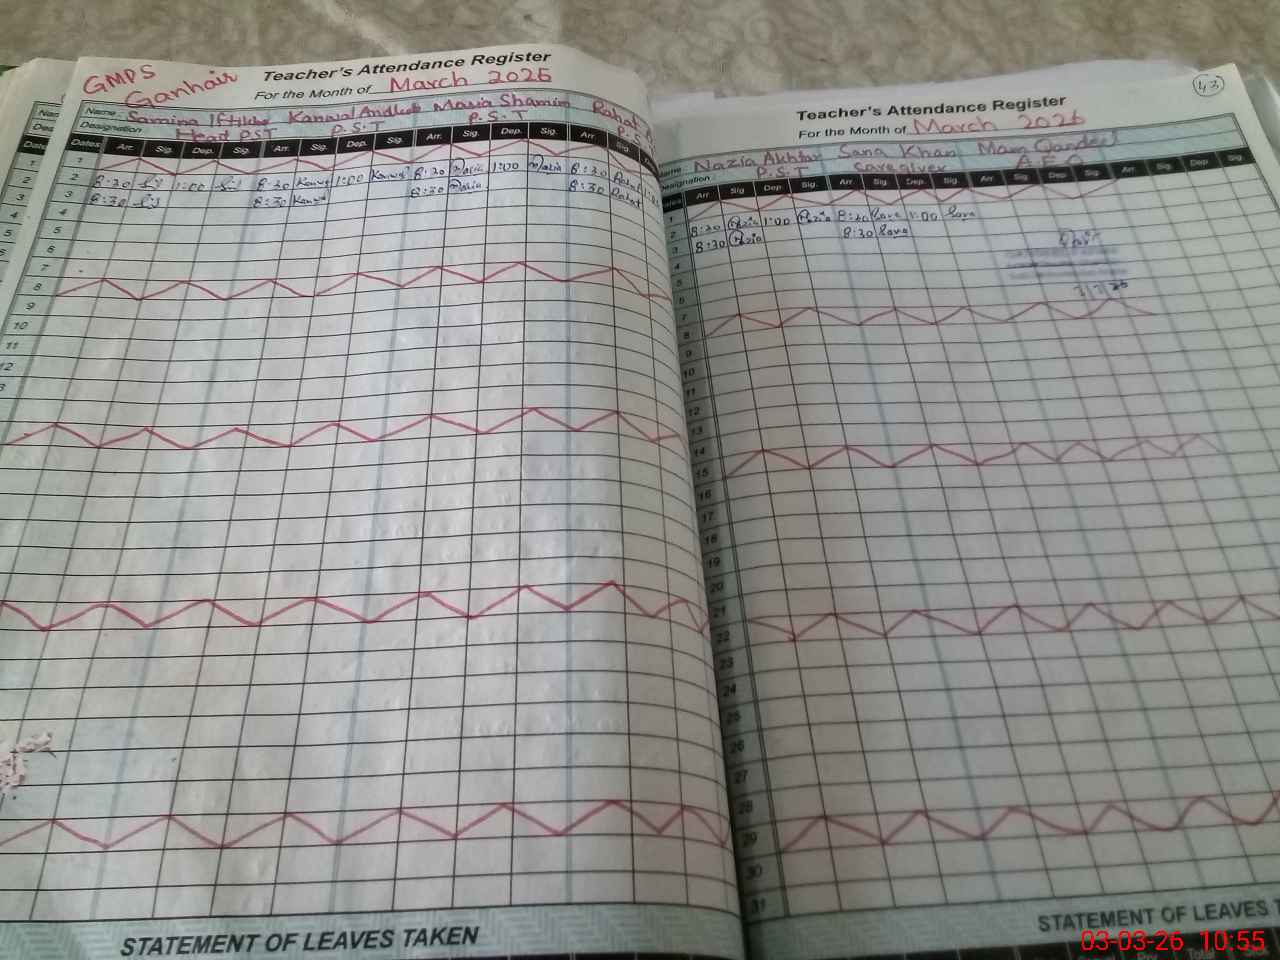 GMPS
Ganhair
Teacher's Attendance Register
For the Month of March 2026
Name Samina Iftikhar Kanwal Andleeb Maria Shamim Rahat
Designation Head PST P.S.T P.S.T P.S
Dates Arr. Sig. Dep. Sig. Arr. Sig. Dep. Sig. Arr. Sig. Dep. Sig. Arr. Sig.
1
2 8:30 1:00 8:30 Kanwal 1:00 Kanwal 8:30 Maria 1:00 Maria 8:30 Rahat 1:00
3 8:30 8:30 Kanwal 8:30 Maria 8:30 Rahat
4
5
6
7
8
9
10
11
12
STATEMENT OF LEAVES TAKEN
43
Teacher's Attendance Register
For the Month of March 2026
Name Nazia Akhtar Sana Khan Mam Qandeel
Designation P.S.T caregiver A.E.O
Dates Arr Sig. Dep Sig. Arr. Sig. Dep. Sig. Arr. Sig. Dep Sig. Arr. Sig. Dep. Sig.
1
2 8:30 Nazia 1:00 Nazia 8:30 Sana 1:00 Sana
3 8:30 Nazia 8:30 Sana
4
5
6
7
8
9
10
11
12
13
14
15
16
17
18
19
20
21
22
23
24
25
26
27
28
29
30
31
STATEMENT OF LEAVES T
03-03-26 10:55